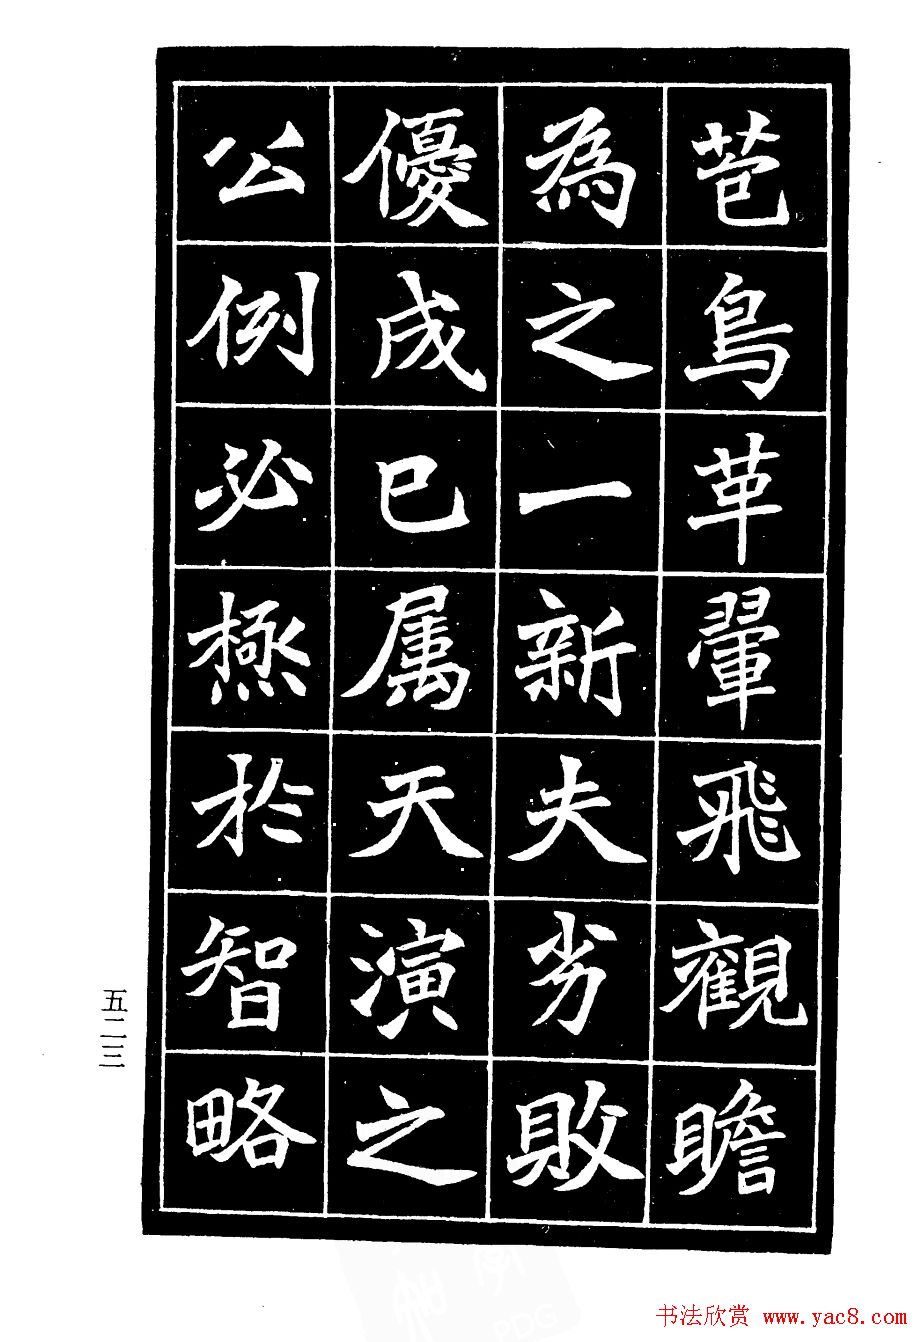 苞鳥革翬飛觀瞻
為之一新夫劣敗
優成已属天演之
公例必極於智略
五二三
书法欣赏 www.yac8.com